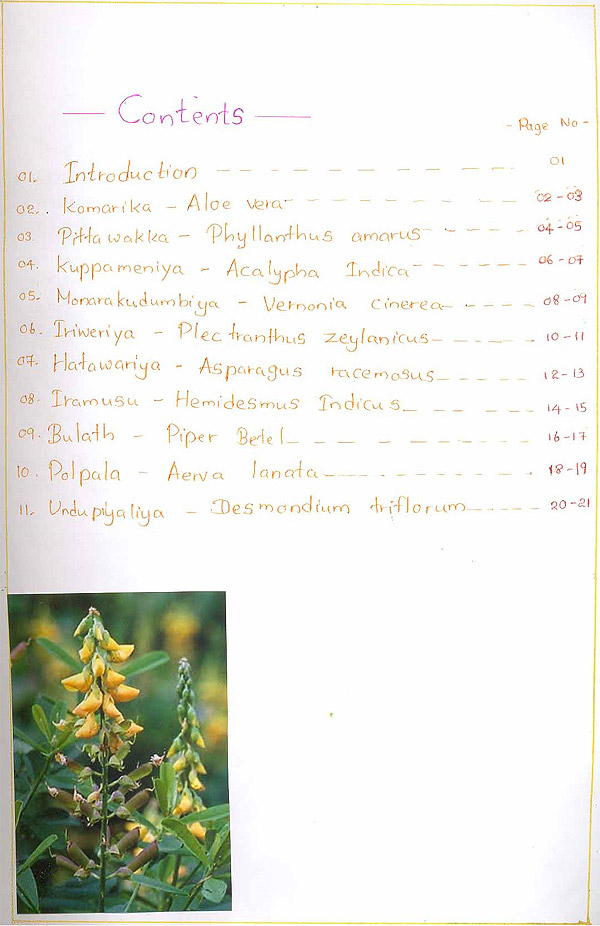 — Contents —
- Page No -
01. Introduction - - - - - - - 01
02. Komarika - Aloe vera - - - - - - - 02-03
03. Pittawakka - Phyllanthus amarus - - - - 04-05
04. Kuppameniya - Acalypha Indica - - - - - 06-07
05. Monarakudumbiya - Vernonia cinerea - - - - 08-09
06. Iriweriya - Plectranthus zeylanicus - - - - - 10-11
07. Hatawariya - Asparagus racemosus - - - - - 12-13
08. Iramusu - Hemidesmus Indicus - - - - - 14-15
09. Bulath - Piper Betel - - - - - - - 16-17
10. Polpala - Aerva lanata - - - - - - - 18-19
11. Undupiyaliya - Desmondium triflorum - - - - 20-21